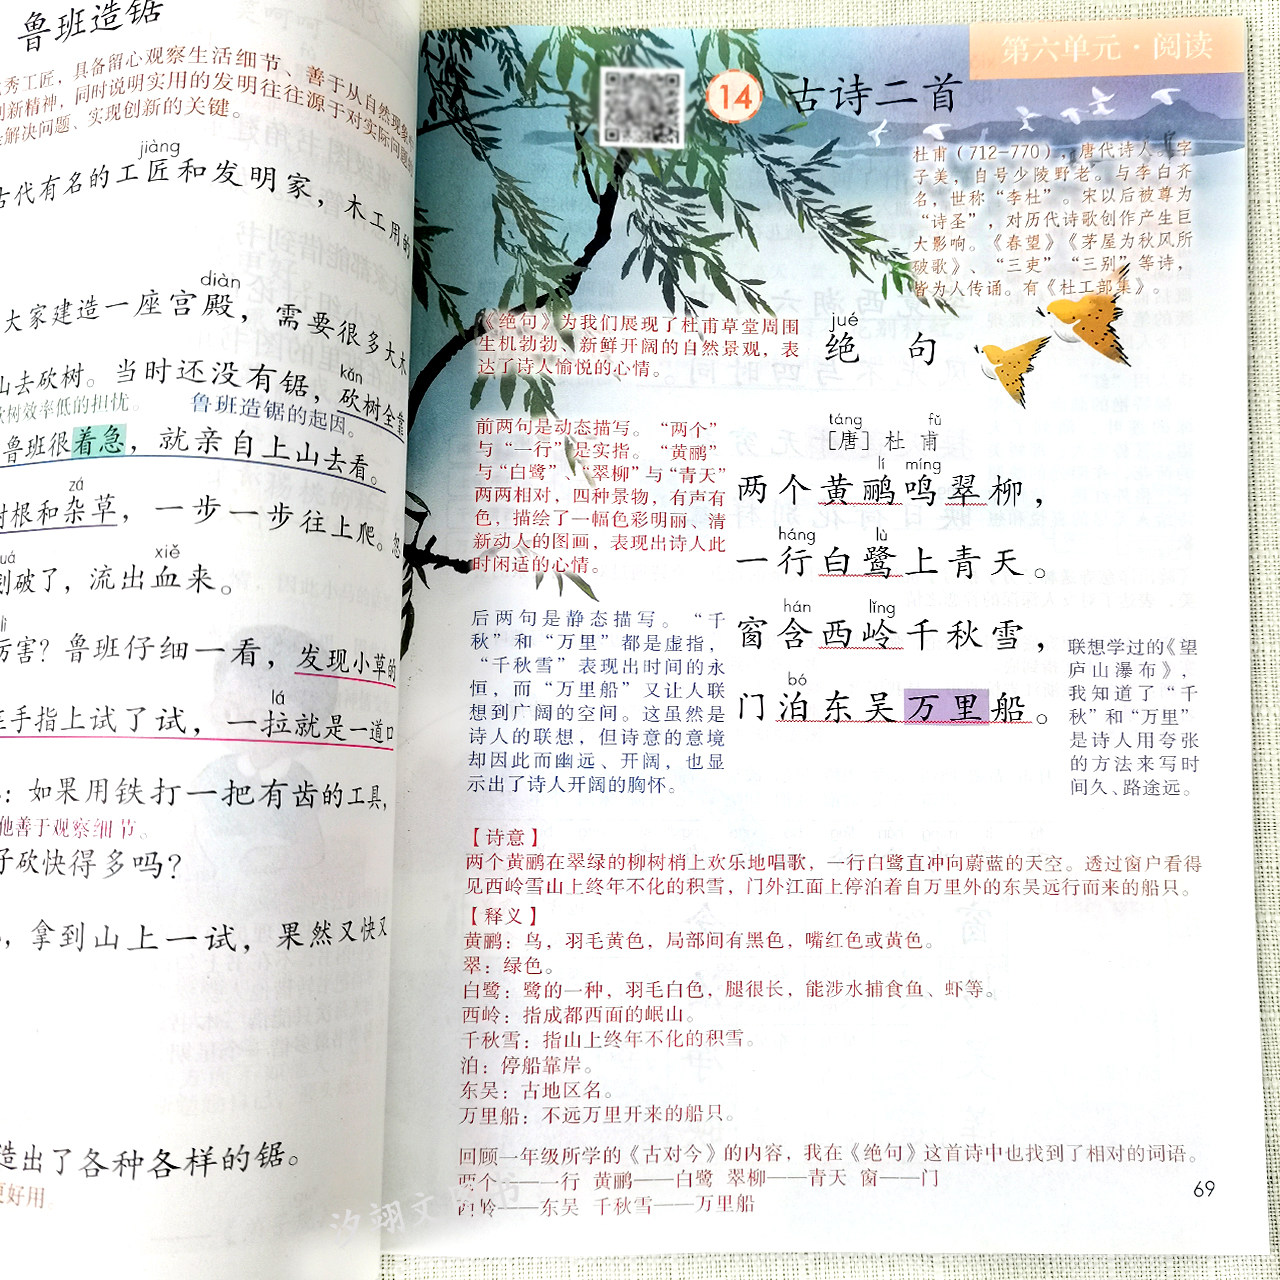 鲁班造锯
秀工匠，具备留心观察生活细节、善于从自然现象
创新精神，同时说明实用的发明往往源于对实际问题的
解决问题、实现创新的关键。
jiàng
古代有名的工匠和发明家，木工用的
diàn
大家建造一座宫殿，需要很多大木
山去砍树。当时还没有锯，砍树全靠
kǎn
砍树效率低的担忧。
鲁班造锯的起因。
鲁班很着急，就亲自上山去看。
zá
树根和杂草，一步一步往上爬。忽
xiě
划破了，流出血来。
厉害？鲁班仔细一看，发现小草的
lá
在手指上试了试，一拉就是一道口
：如果用铁打一把有齿的工具，
他善于观察细节。
子砍快得多吗？
，拿到山上一试，果然又快又
造出了各种各样的锯。
更好用
第六单元·阅读
14 古诗二首
杜甫（712-770），唐代诗人。字
子美，自号少陵野老。与李白齐
名，世称“李杜”。宋以后被尊为
“诗圣”，对历代诗歌创作产生巨
大影响。《春望》《茅屋为秋风所
破歌》、“三吏”“三别”等诗，
皆为人传诵。有《杜工部集》。
《绝句》为我们展现了杜甫草堂周围
生机勃勃、新鲜开阔的自然景观，表
达了诗人愉悦的心情。
jué
绝句
táng fǔ
［唐］杜甫
lí míng
两个黄鹂鸣翠柳，
háng lù
一行白鹭上青天。
hán lǐng
窗含西岭千秋雪，
bó
门泊东吴万里船。
前两句是动态描写。“两个”
与“一行”是实指。“黄鹂”
与“白鹭”、“翠柳”与“青天”
两两相对，四种景物，有声有
色，描绘了一幅色彩明丽、清
新动人的图画，表现出诗人此
时闲适的心情。
后两句是静态描写。“千
秋”和“万里”都是虚指，
“千秋雪”表现出时间的永
恒，而“万里船”又让人联
想到广阔的空间。这虽然是
诗人的联想，但诗意的意境
却因此而幽远、开阔，也显
示出了诗人开阔的胸怀。
联想学过的《望
庐山瀑布》，
我知道了“千
秋”和“万里”
是诗人用夸张
的方法来写时
间久、路途远。
【诗意】
两个黄鹂在翠绿的柳树梢上欢乐地唱歌，一行白鹭直冲向蔚蓝的天空。透过窗户看得
见西岭雪山上终年不化的积雪，门外江面上停泊着自万里外的东吴远行而来的船只。
【释义】
黄鹂：鸟，羽毛黄色，局部间有黑色，嘴红色或黄色。
翠：绿色。
白鹭：鹭的一种，羽毛白色，腿很长，能涉水捕食鱼、虾等。
西岭：指成都西面的岷山。
千秋雪：指山上终年不化的积雪。
泊：停船靠岸。
东吴：古地区名。
万里船：不远万里开来的船只。
回顾一年级所学的《古对今》的内容，我在《绝句》这首诗中也找到了相对的词语。
两个——一行 黄鹂——白鹭 翠柳——青天 窗——门
西岭——东吴 千秋雪——万里船
69
汐翊文 书